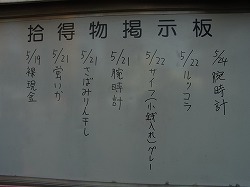 拾得物掲示板
5/24 腕時計
5/22 ルッコラ
5/22 サイフ(小銭入れ)グレー
5/21 腕時計
5/21 さばみりん干し
5/21 蛍いか
5/19 裸現金